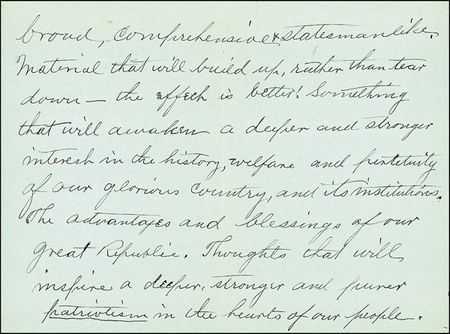 broad, comprehensive & statesmanlike.
Material that will build up, rather than tear
down — the effect is better! Something
that will awaken a deeper and stronger
interest in the history, welfare and perpetuity
of our glorious country, and its institutions.
The advantages and blessings of our
great Republic. Thoughts that will
inspire a deeper, stronger and purer
patriotism in the hearts of our people.